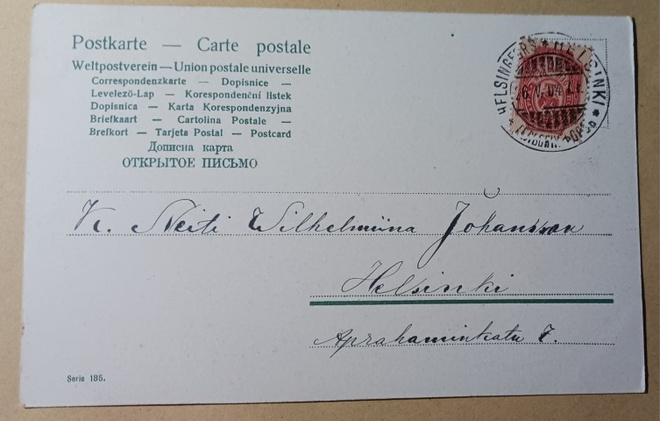 Postkarte — Carte postale
Weltpostverein — Union postale universelle
Correspondenzkarte — Dopisnice —
Levelező-Lap — Korespondenční listek
Dopisnica — Karta Korespondenzyjna
Briefkaart — Cartolina Postale —
Brefkort — Tarjeta Postal — Postcard
Дописна карта
ОТКРЫТОЕ ПИСЬМО
HELSINGFORS * HELSINKI *
K. Neiti Wilhelmiina Johansson
Helsinki
Aprahaminkatu 7.
Serie 185.